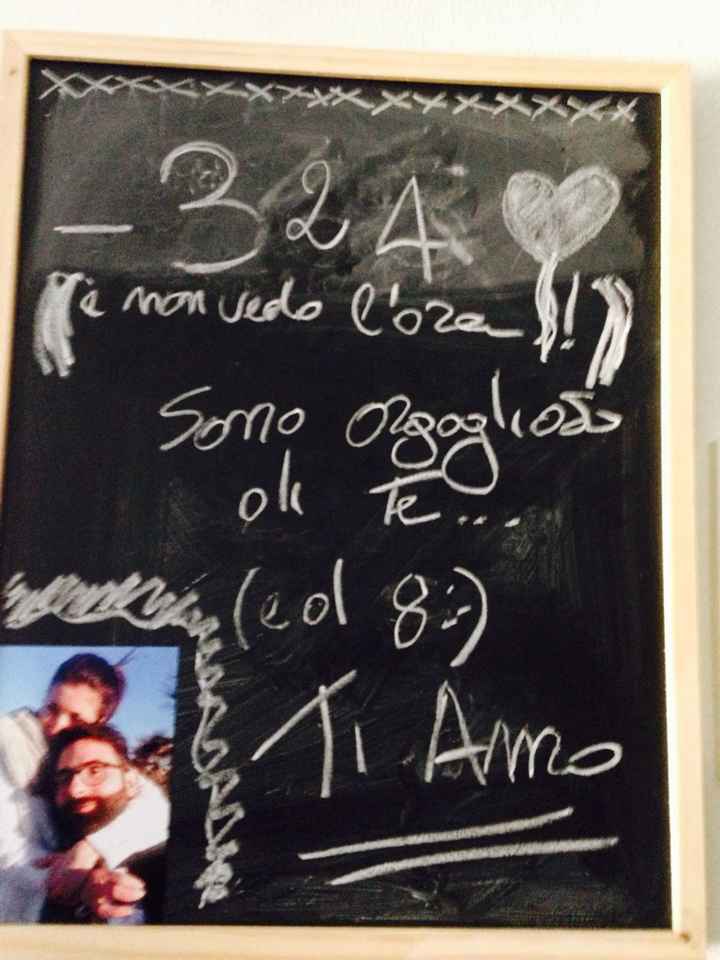 XXXXXXXXXXXXXXXX
-324
(è non vedo l'ora!!)
Sono orgoglioso
di Te...
(ed 8:-)
Ti Amo